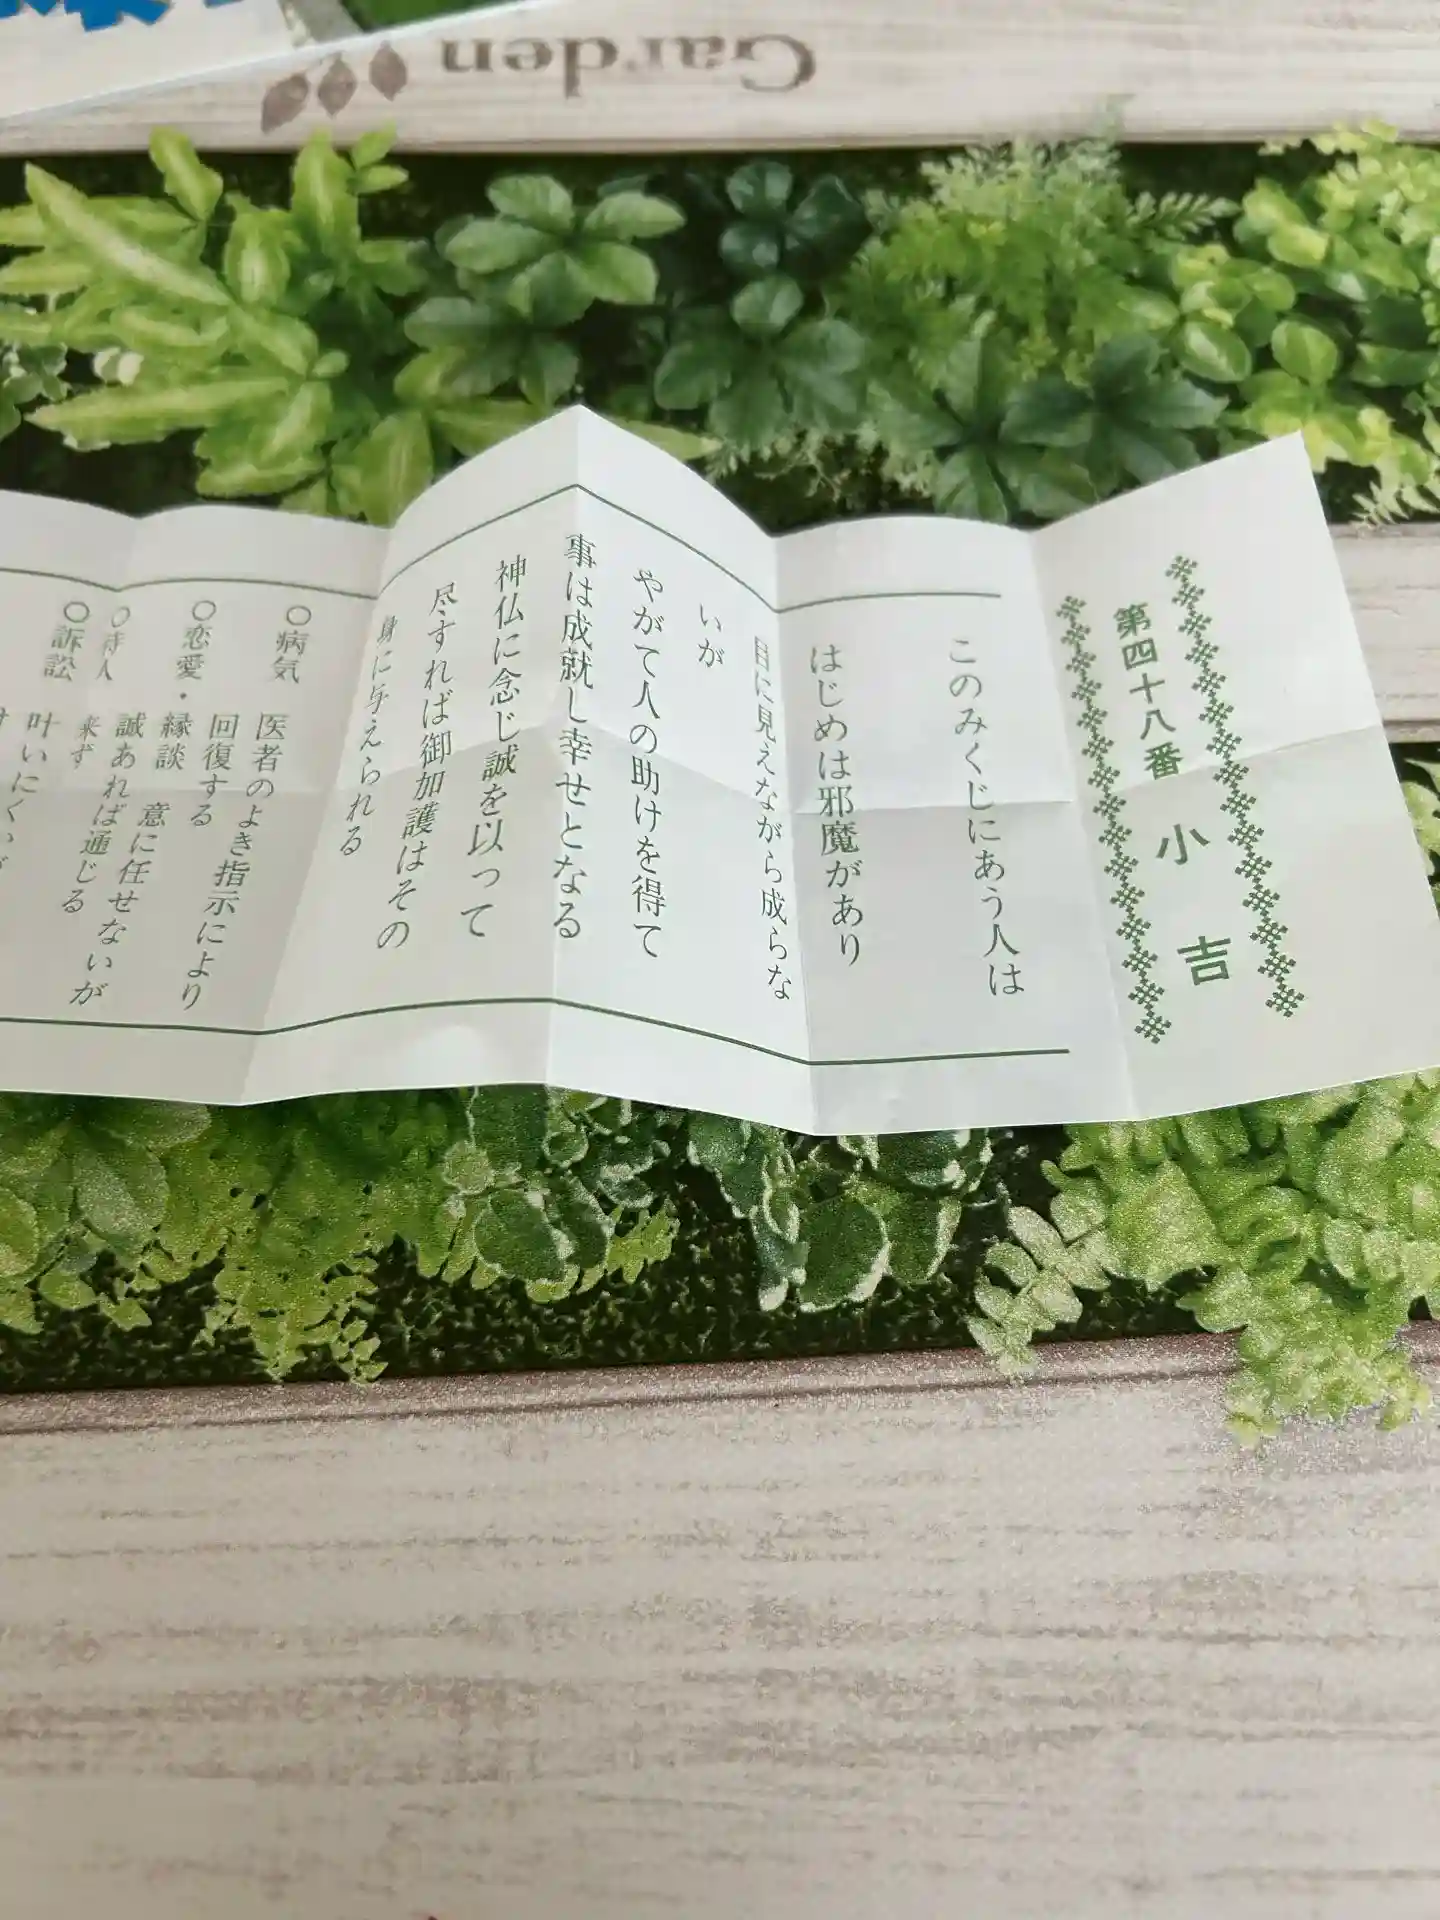 Garden
第四十八番 小吉
このみくじにあう人は
はじめは邪魔があり
目に見えながら成らな
いが
やがて人の助けを得て
事は成就し幸せとなる
神仏に念じ誠を以って
尽すれば御加護はその
身に与えられる
○病気 医者のよき指示により
回復する
○恋愛・縁談 意に任せないが
誠あれば通じる
○待人 来ず
○訴訟 叶いにくいが